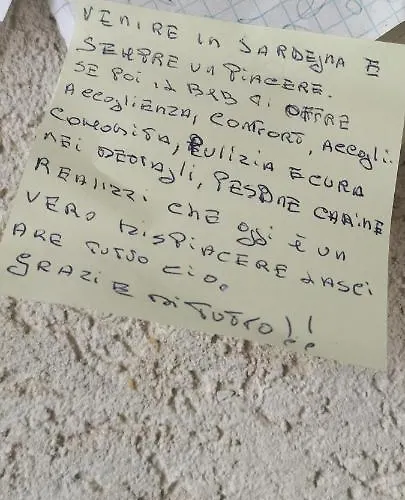 VENIRE IN SARDEGNA È
SEMPRE UN PIACERE.
SE POI IL B&B TI OFFRE
ACCOGLIENZA, COMFORT, ACCOGLI.
COMODITA, PULIZIA E CURA
NEI DETTAGLI, PERSONE CARINE
REALIZZI CHE OGGI È UN
VERO DISPIACERE LASCI
ARE TUTTO CIO.
GRAZIE DI TUTTO!!